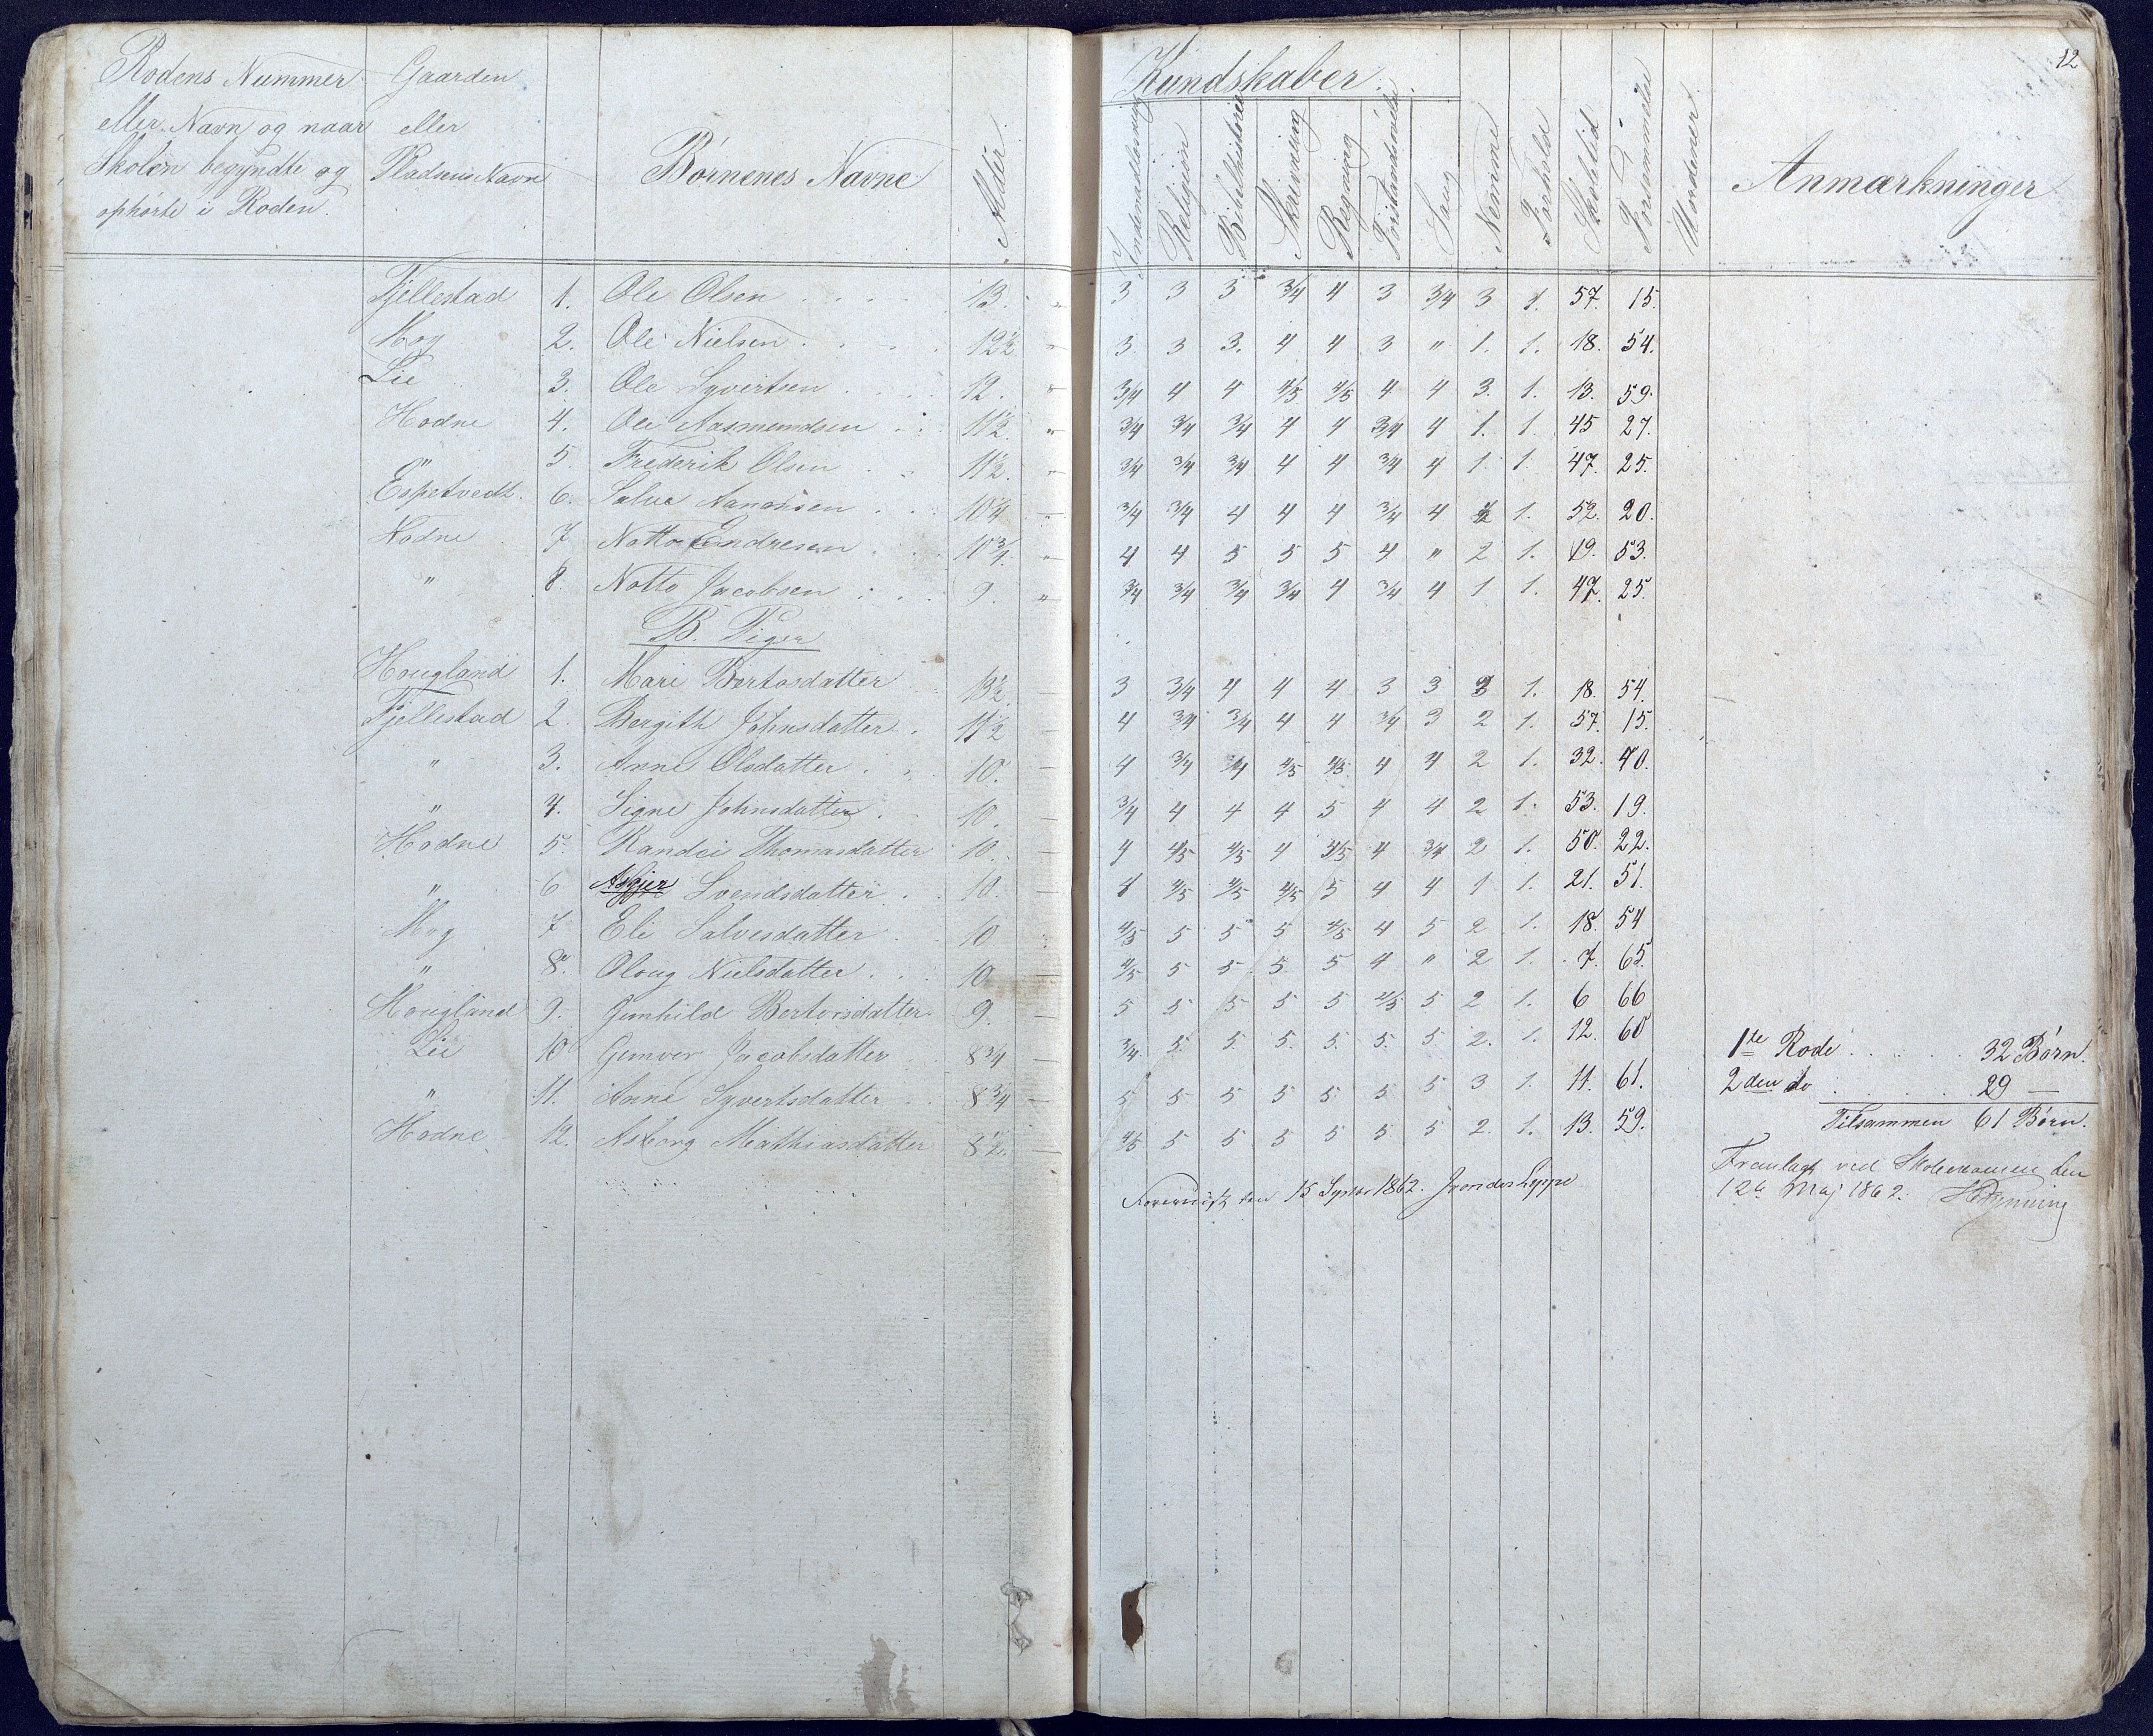 12
Rodens Nummer eller Navn og naar Skolen begyndte og ophørte i Roden.
Gaarden eller Pladsens Navn
Børnenes Navne
Alder
Kundskaber.
Indenadlæsning
Religion
Bibelhistorie
Skrivning
Regning
Forstandsøvelse
Sang
Nemme
Forhold
Skoletid
Forsømmelse
Uordener
Anmærkninger
Fjellestad 1. Ole Olsen 13. " 3 3 3 3/4 4 3 3/4 3 1. 57. 15.
Moy 2. Ole Nielsen 12½ " 3 3 3. 4 4 3 " 1. 1. 18. 54.
Lie 3. Ole Syvertsen 12. " 3/4 4 4 4/5 4/5 4 4 3. 1. 13. 59.
Hodne 4. Ole Aasmundsen 11½. " 3/4 3/4 3/4 4 4 3/4 4 1. 1. 45 27.
" 5. Frederik Olsen 11½. " 3/4 3/4 3/4 4 4 3/4 4 1. 1. 47. 25.
Espetvedt. 6. Salve Aanonsen 10¾ " 3/4 3/4 4 4 4 3/4 4 2 1. 52. 20.
Hodne 7 Notto Endresen 10¾. " 4 4 5 5 5 4 " 2 1. 19. 53.
" 8. Notto Jacobsen 9. " 3/4 3/4 3/4 3/4 4 3/4 4 1 1. 47. 25.
B. Piger
Hougland 1. Mari Bertosdatter 13½ — 3 3/4 4 4 4 3 3 3 1. 18. 54.
Fjellestad 2. Bergith Johnsdatter 11½ — 4 3/4 3/4 4 4 3/4 3 2 1. 57. 15.
" 3. Anne Olsdatter 10. — 4 3/4 3/4 4/5 4/5 4 4 2 1. 32. 40.
" 4. Signe Johnsdatter 10. — 3/4 4 4 4 5 4 4 2 1. 53. 19.
Hodne 5. Randei Thomasdatter 10. — 4 4/5 4/5 4 4/5 4 3/4 2 1. 50. 22.
" 6 Asgjer Svendsdatter 10. — 4 4/5 4/5 4/5 5 4 4 1 1. 21. 51.
Moy 7 Eli Salvesdatter 10 — 4/5 5 5 5 4/5 4 5 2 1. 18. 54
" 8. Oloug Nielsdatter 10 — 4/5 5 5 5 5 4 " 2 1. 7. 65.
Hougland 9. Gunhild Bertosdatter 9. — 5 5 5 5 5 4/5 5 2 1. 6 66
Lie 10 Gunvor Jacobsdatter 8¾ — 3/4 5. 5. 5. 5. 5. 5 2. 1. 12. 60
" 11. Anne Syvertsdatter 8¾ — 5 5 5 5 5 5 5 3 1. 11. 61.
Hodne 12. Asborg Mathiasdatter 8½. — 4/5 5 5 5 5 5 5 2. 1. 13. 59.
1te Rode 32 Børn.
2den do 29 —
Tilsammen 61 Børn.
Fremlagt ved Skoleexamen den
12te Maj 1862.
Foreviist den 15 Septbr 1862.